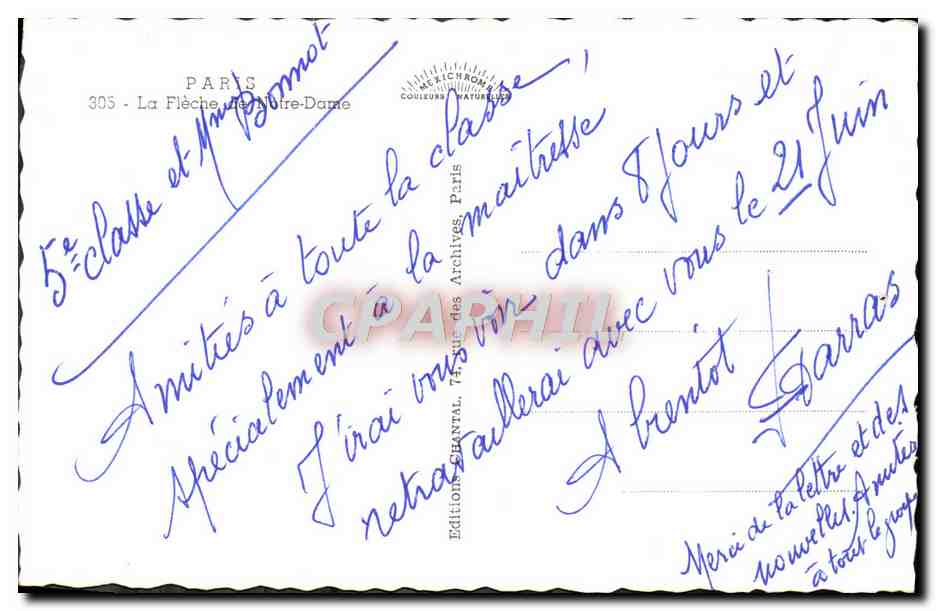 PARIS
305 - La Flèche de Notre-Dame
MEXICHROME
COULEURS NATURELLES
5e classe et Mme Bonnot
Amitiés à toute la classe,
spécialement à la maîtresse
J'irai vous voir dans 8 jours et
retravaillerai avec vous le 21 Juin
A bientot
Darras
Merci de la lettre et des
nouvelles. Amitiés
à tout le groupe
Editions CHANTAL, 74, rue des Archives, Paris
CPARHIL